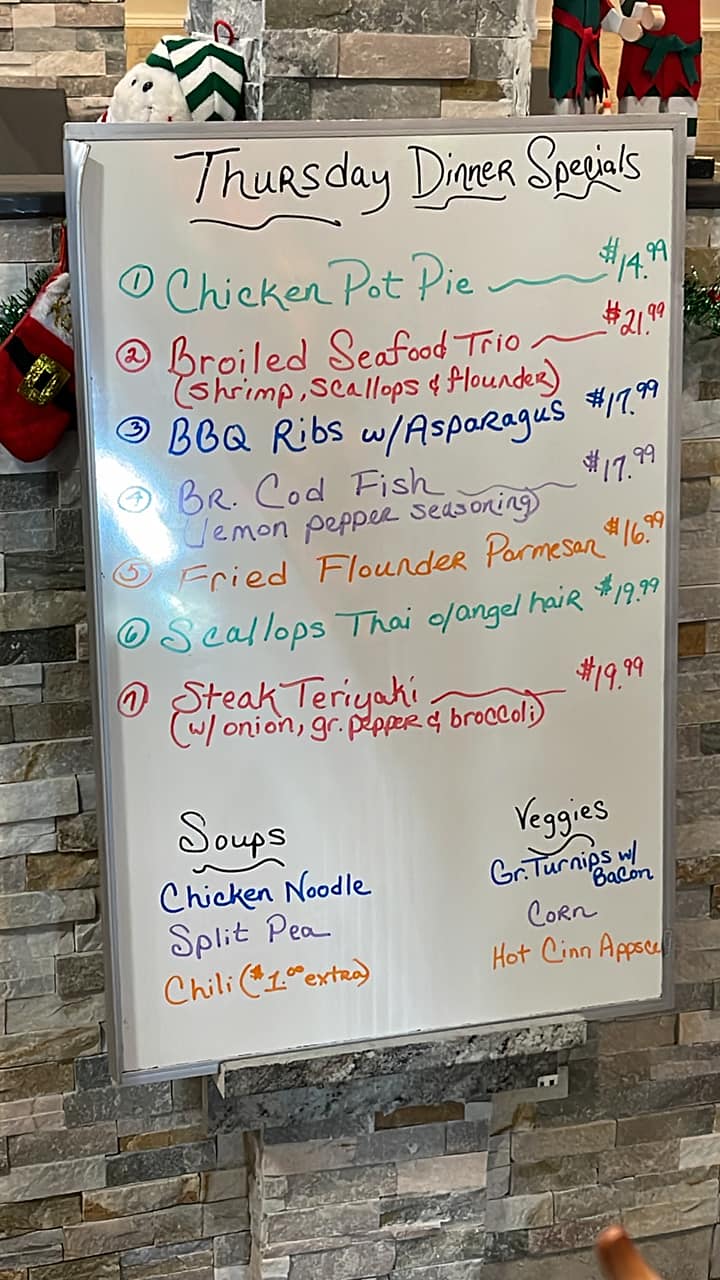 Thursday Dinner Specials
① Chicken Pot Pie $14.99
② Broiled Seafood Trio $21.99
(shrimp, scallops & flounder)
③ BBQ Ribs w/Asparagus $17.99
④ BR. Cod Fish $17.99
(lemon pepper seasoning)
⑤ Fried Flounder Parmesan $16.99
⑥ Scallops Thai o/angel hair $19.99
⑦ Steak Teriyaki $19.99
(w/ onion, gr. pepper & broccoli)
Soups
Chicken Noodle
Split Pea
Chili ($1.00 extra)
Veggies
Gr. Turnips w/
Bacon
Corn
Hot Cinn Appsce